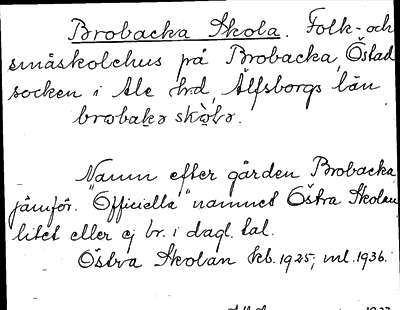 Brobacka Skola. Folk- och
småskolehus på Brobacka, Östad
socken i Ale hd, Älfsborgs län
brobakə skòlə.
Namn efter gården Brobacka
jämför. "Officiella" namnet Östra Skolan
litet eller ej br. i dagl. tal.
Östra Skolan kb. 1925, vl. 1936.